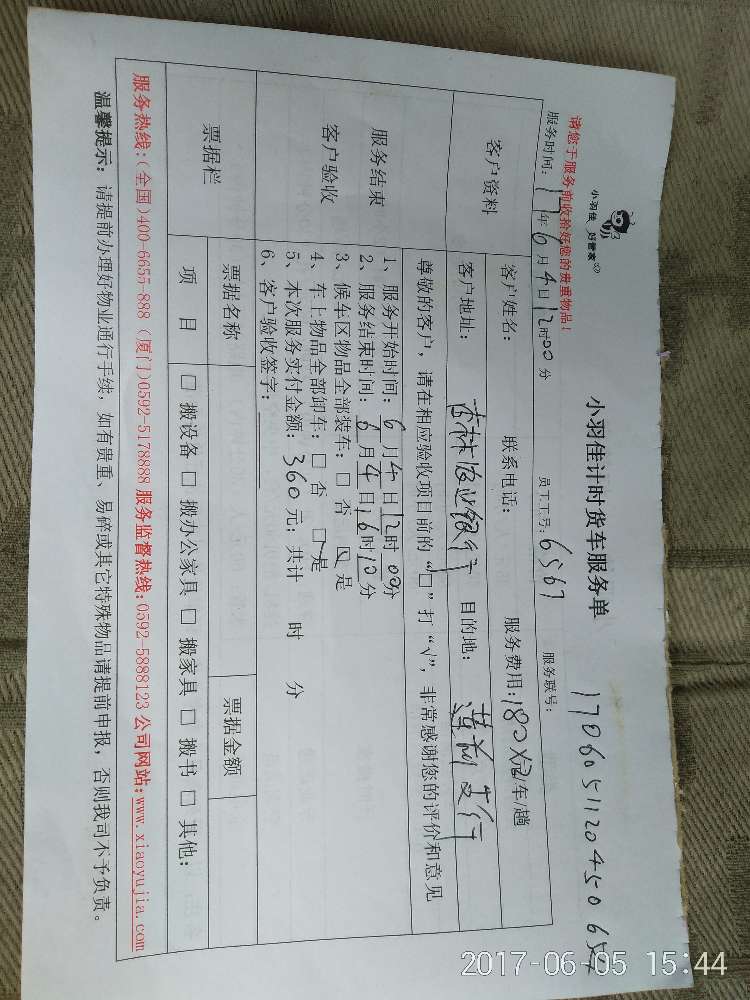 小羽佳 好管家
小羽佳计时货车服务单
请您于服务前收拾好您的贵重物品!
服务时间: 17年6月4日12时00分 员工工号: 6567 服务联号:
客户资料
客户姓名: 联系电话: 服务费用: 180 元/车/趟
客户地址: 银行 目的地: 支行
服务结束
客户验收
尊敬的客户，请在相应验收项目前的“□”打“√”，非常感谢您的评价和意见
1、服务开始时间: 6月4日12时00分
2、服务结束时间: 6月4日16时10分
3、候车区物品全部装车: □ 否 ☑ 是
4、车上物品全部卸车: □ 否 ☑ 是
5、本次服务实付金额: 360元; 共计 时 分
6、客户验收签字:
票据栏
票据名称 票据金额
项 目 □ 搬设备 □ 搬办公家具 □ 搬家具 □ 搬书 □ 其他:
服务热线:(全国)400-6655-888 (厦门)0592-5178888 服务监督热线:0592-5888123 公司网站:www.xiaoyujia.com
温馨提示: 请提前办理好物业通行手续，如有贵重、易碎或其它特殊物品请提前申报，否则我司不予负责。
2017-06-05 15:44